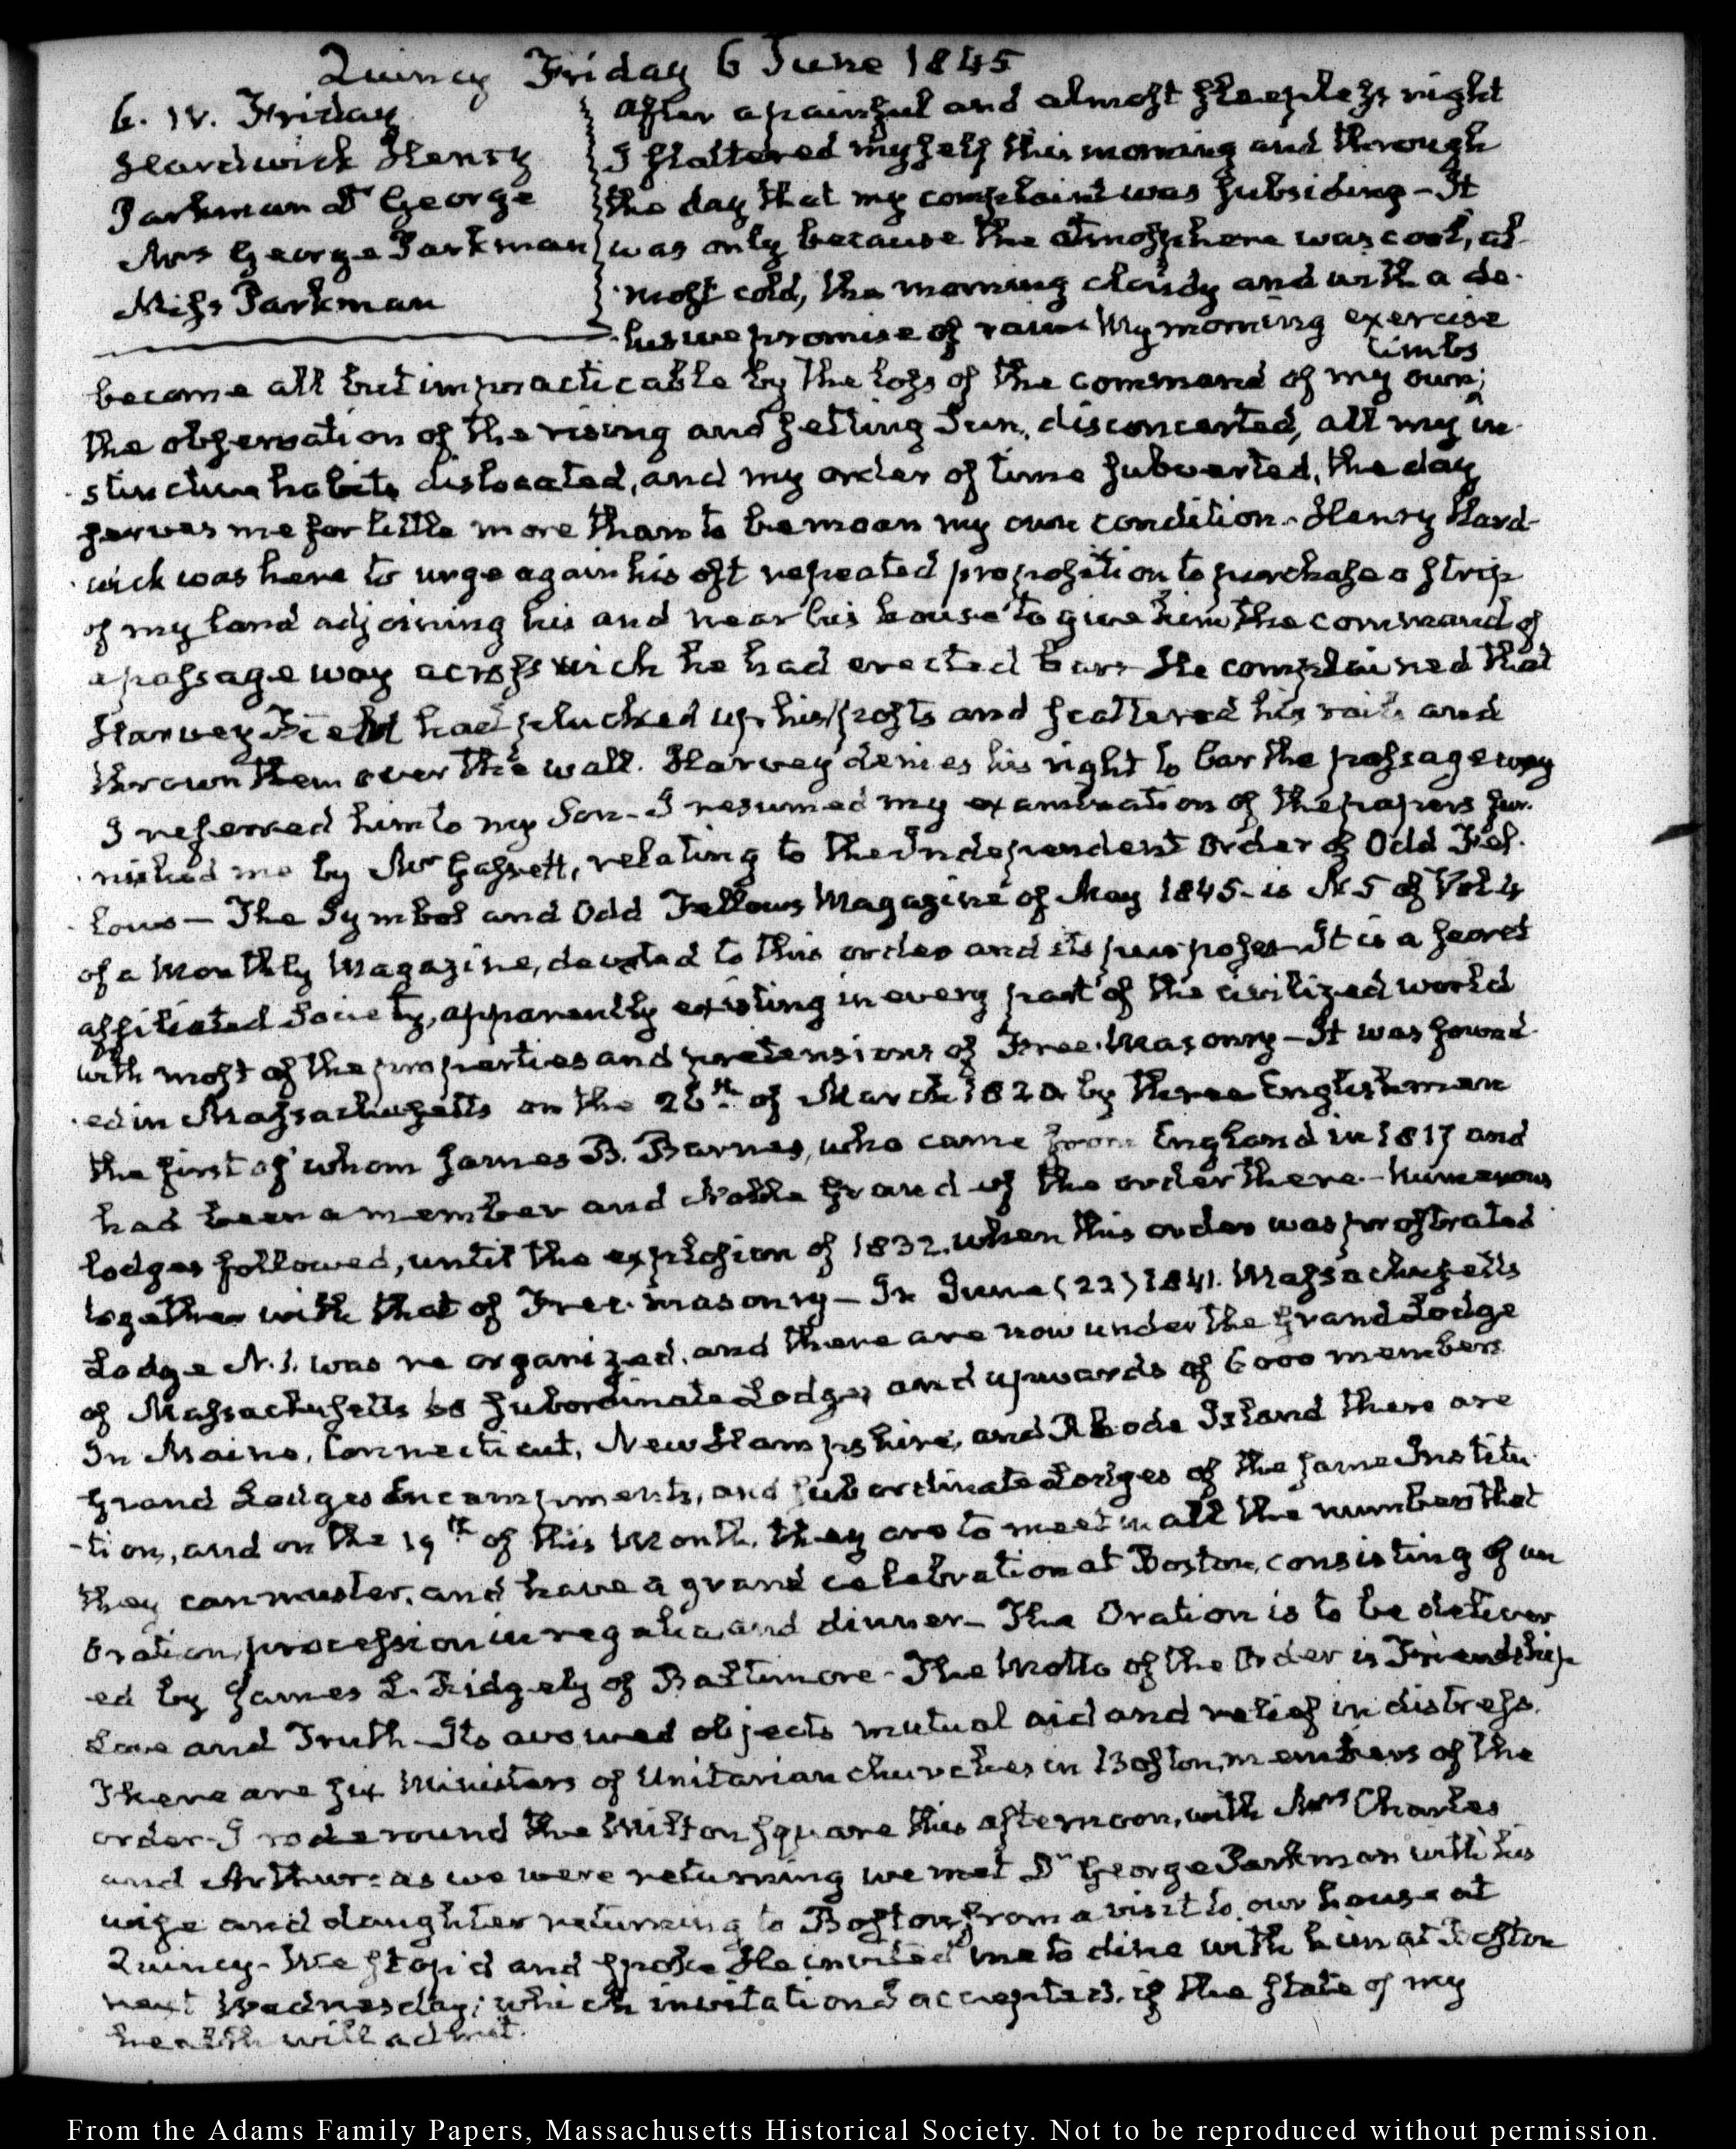 Quincy Friday 6 June 1845
6. IV. Friday
Hardwick Henry
Parkman Dr George
Mrs George Parkman
Miss Parkman
After a painful and almost sleepless night
I flattered myself this morning and through
the day that my complaint was subsiding – It
was only because the atmosphere was cool, al-
most cold, the morning cloudy and with a de-
lusive promise of rain. My morning exercise
limbs
become all but impracticable by the loss of the command of my own;
the observation of the rising and setting Sun, disconcerted, all my in-
stinctive habits dislocated, and my order of time subverted, the day
serves me for little more than to bemoan my own condition. Henry Hard-
wick was here to urge again his oft repeated proposition to purchase a strip
of my land adjoining his and near his house to give him the command of
a passage way across which he had erected bars He complained that
Harvey Field had plucked up his posts and scattered his rails and
thrown them over the wall. Harvey denies his right to bar the passage way
I referred him to my Son – I resumed my examination of the papers fur-
nished me by Mr Gassett, relating to the Independent Order of Odd Fel-
lows – The Symbol and Odd Fellows Magazine of May 1845 – is N. 5 of Vol. 4
of a Monthly Magazine, devoted to this order and its purposes – It is a secret
affiliated Society, apparently existing in every part of the civilized world
with most of the properties and pretensions of Free-Masonry – It was found-
ed in Massachusetts on the 26th of March 1820 by three Englishmen
the first of whom James B. Barnes, who came from England in 1817 and
had been a member and Noble Grand of the order there – numerous
lodges followed, until the explosion of 1832. when this order was prostrated
together with that of Free-masonry – In June (22) 1841. Massachusetts
Lodge N. 1. was re organized, and there are now under the Grand Lodge
of Massachusetts subordinate Lodges and upwards of 6000 members
In Maine, Connecticut, New Hampshire, and Rhode Island there are
Grand Lodges Encampments, and subordinate Lodges of the same Institu-
-tion, and on the 19th of this Month. they are to meet in all the numbers that
they can muster, and have a grand celebration at Boston, consisting of an
Oration, procession in regalia, and dinner – The Oration is to be deliver-
ed by James L. Ridgely of Baltimore – The Motto of the Order is Friendship
Love and Truth – Its avowed objects mutual aid and relief in distress.
There are six Ministers of Unitarian churches in Boston, members of the
order – I rode round the Milton square this afternoon, with Mrs Charles
and Arthur: as we were returning we met Dr George Parkman with his
wife and daughter returning to Boston from a visit to our house at
Quincy – We stop'd and spoke He invited me to dine with him at Boston
next Wednesday; which invitation I accepted. if the state of my
health will admit.
From the Adams Family Papers, Massachusetts Historical Society. Not to be reproduced without permission.